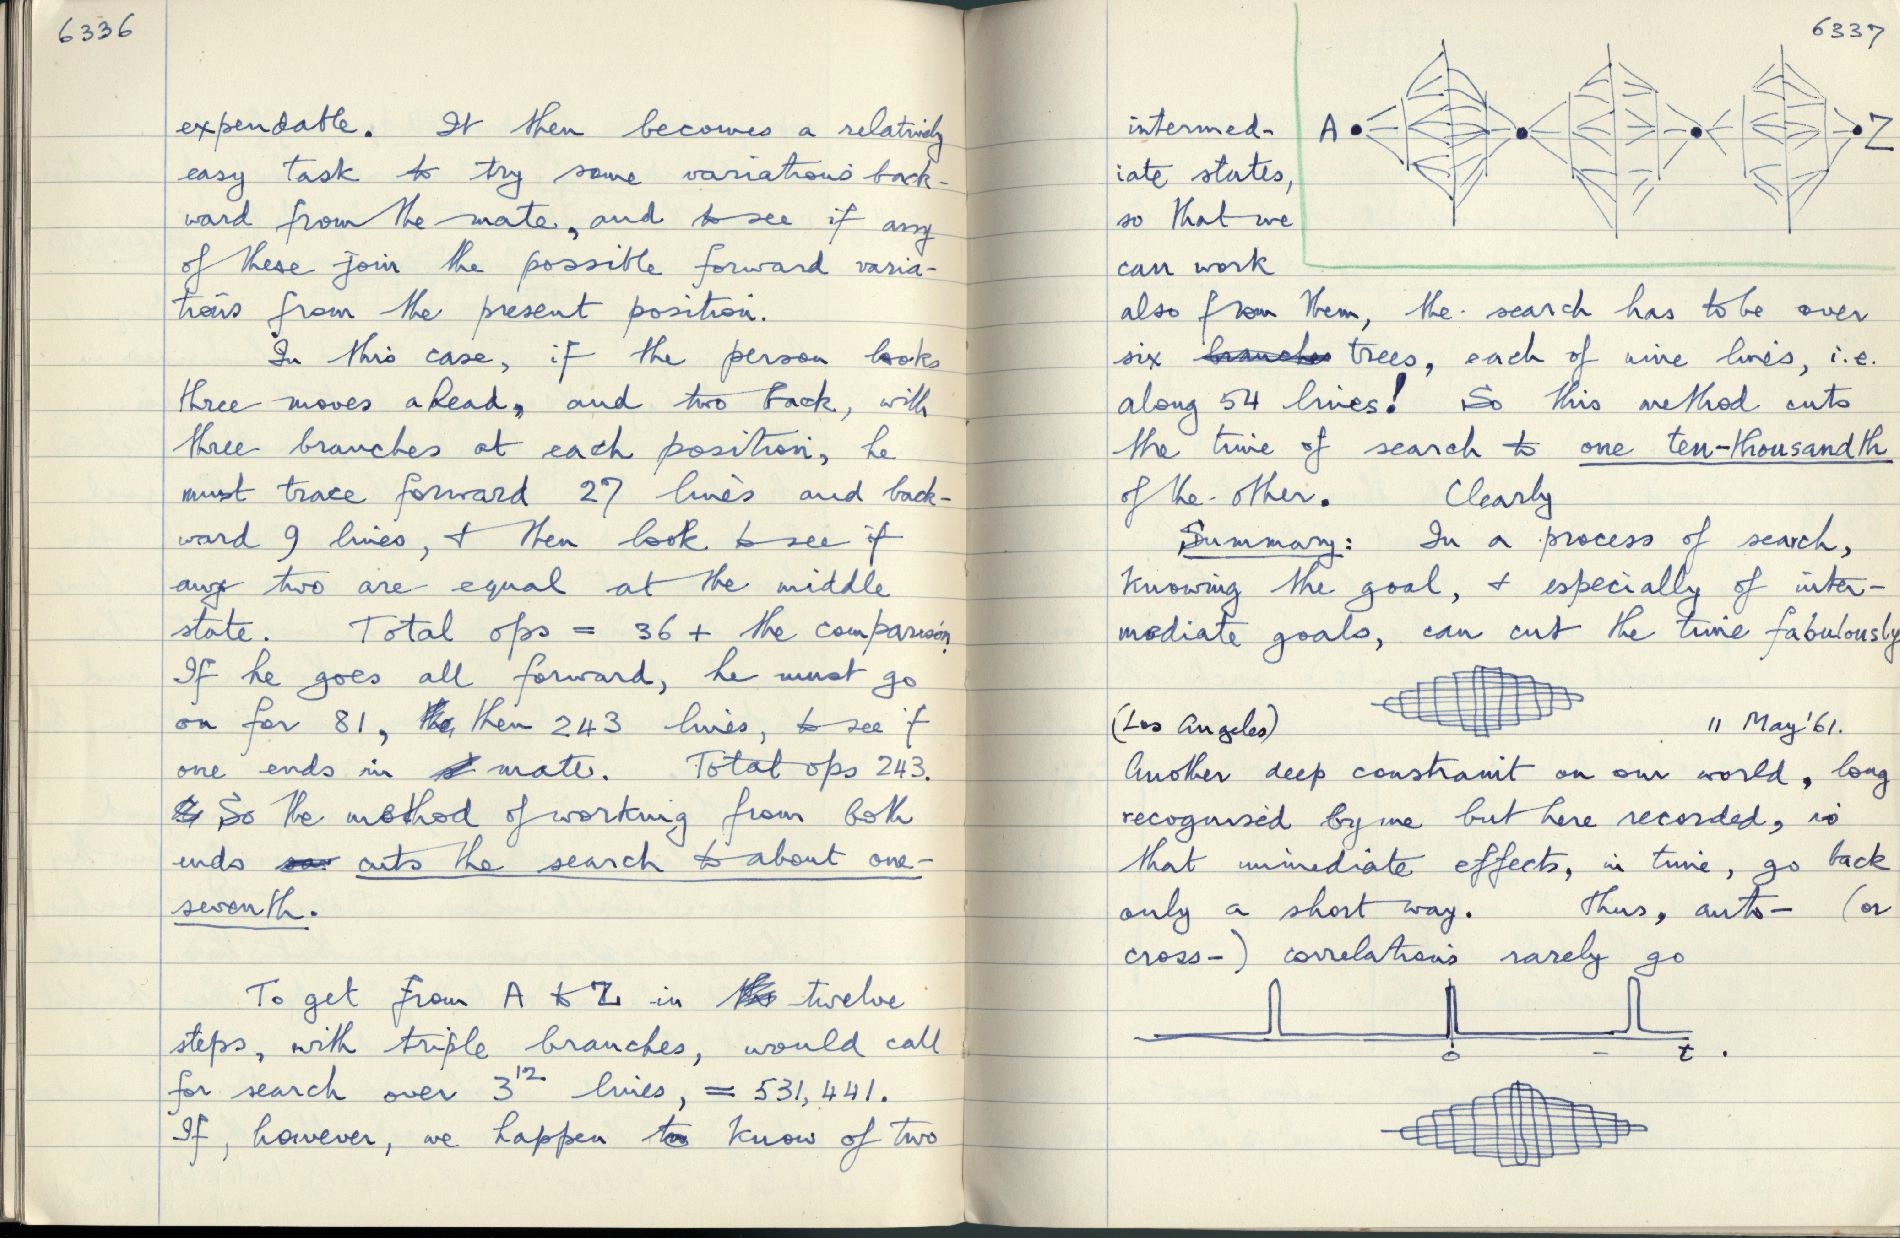 6336
expendable. It then becomes a relatively
easy task to try some variations back-
ward from the mate, and to see if any
of these join the possible forward varia-
tions from the present position.
In this case, if the person looks
three moves ahead, and two back, with
three branches at each position, he
must trace forward 27 lines and back-
ward 9 lines, & then look to see if
any two are equal at the middle
state. Total ops = 36 + the comparison.
If he goes all forward, he must go
on for 81, then 243 lines, to see if
one ends in mate. Total ops 243.
So the method of working from both
ends cuts the search to about one-
seventh.
To get from A to Z in twelve
steps, with triple branches, would call
for search over 3¹² lines, = 531,441.
If, however, we happen to know of two
6337
A Z
intermed-
iate states,
so that we
can work
also from them, the search has to be over
six branches trees, each of nine lines, i.e.
along 54 lines! So this method cuts
the time of search to one ten-thousandth
of the other. Clearly
Summary: In a process of search,
knowing the goal, & especially of inter-
mediate goals, can cut the time fabulously
(Los Angeles) 11 May '61.
Another deep constraint on our world, long
recognised by me but here recorded, is
that immediate effects, in time, go back
only a short way. Thus, auto- (or
cross-) correlations rarely go
0 t.